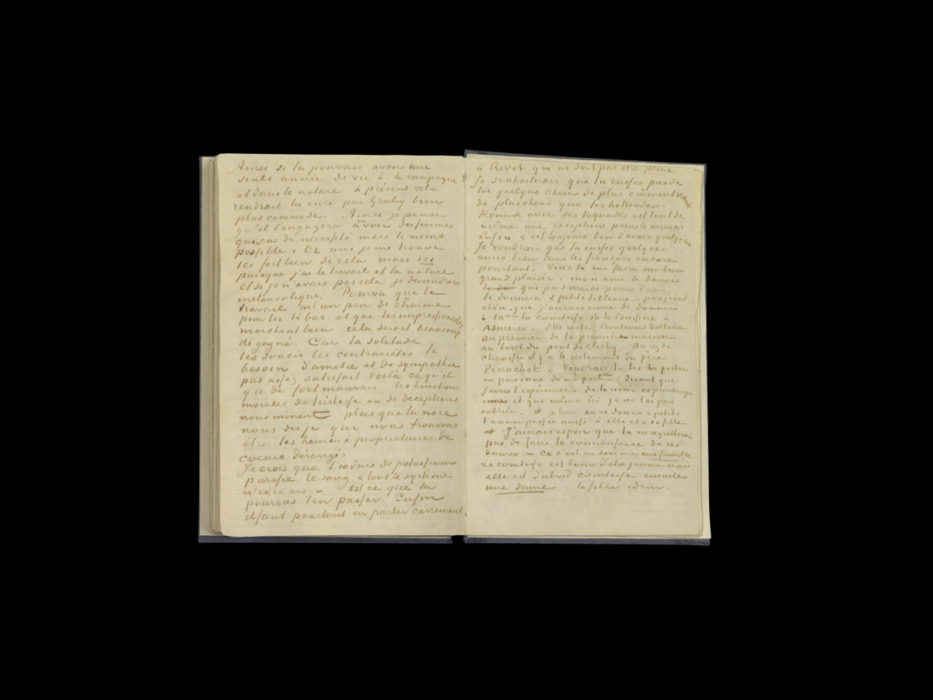 Ainsi si tu pouvais avoir une
seule année de vie à la campagne
et dans la nature à présent cela
rendrait la cure par Gruby bien
plus commode. Ainsi je pense
qu'il t'engagera à voir des femmes
que cas de nécessité mais le moins
possible. Or moi je me trouve
ici fort bien de cela mais ici
puisque j'ai le travail et la nature
et si je n'avais pas cela je deviendrais
mélancolique. Pourvu que le
travail ait un peu de charme
pour toi là bas et que les impressionistes
marchent bien cela serait beaucoup
de gagné. Car la solitude
les soucis les contrariétés le
besoin d'amitié et de sympathie
pas assez satisfait voilà ce qu'il
y a de fort mauvais les émotions
morales de tristesse ou de déceptions
nous minent plus que la noce
nous dis je que nous trouvons
être les heureux propriétaires de
coeurs dérangés
Je crois que l'iodure de potassium
purifie le sang & tout le système
n'est ce pas – est ce que tu
pourras t'en passer. Enfin
il faut pourtant en parler carrément
à Rivet qui ne doit pas être jaloux
Je souhaiterais que tu eusses près de
toi quelque chose de plus
de plus chaud que les Hollandais
Koning avec ses toquades est tout de
même une exception pour le mieux
Enfin c'est toujours bon d'avoir quelqu'un
Je voudrais que tu eusses quelques
amis bien dans les français encore
pourtant. Veux tu me faire un bien
grand plaisir. mon ami le danois
qui part mardi pour Paris
te donnera 2 petits tableaux, pas grand
chose, que j'aurais envie de donner
à la comtesse de la Boissière à
Asnières – Elle reste Boulevard Voltaire
au premier de la première maison
au bout du pont de Clichy. Au rez de
chaussée il y a le restaurant du père
Perruchot. Voudrais tu les lui porter
en personne de ma part disant que
j'avais l'espérance de la revoir ce printemps
et que même ici je ne l'ai pas
oubliée. je leur en ai donné 2 petits
l'année passée aussi à elle et à sa fille
J'aurais espoir que tu ne regretterais
pas de faire la connaissance de ces
dames – car c'est en somme une famille
La comtesse est loin d'être jeune mais
elle est d'abord comtesse ensuite
une dame la fille idem.